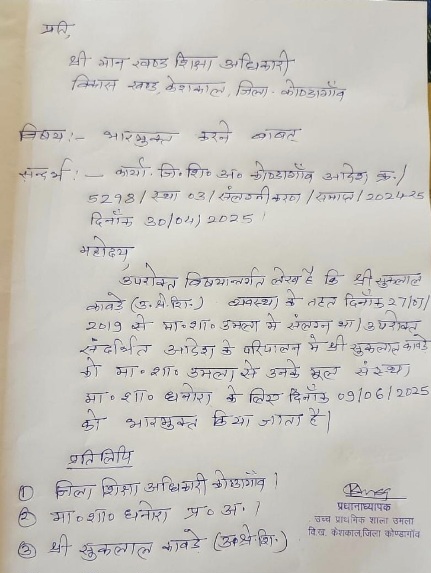 प्रति,
श्री मान खण्ड शिक्षा अधिकारी
विकास खण्ड, केशकाल, जिला- कोण्डागाँव
विषय:- भारमुक्त करने बाबत्
सन्दर्भ:- कार्या. जि॰ शि॰ अ॰ कोण्डागाँव आदेश क्र./
5298/ स्था 03/ संलग्नीकरण/ समाप्त/ 2024-25
दिनाँक 30/04/2025।
महोदय,
उपरोक्त विषयान्तर्गत लेख है कि श्री सुकलाल
कावडे (उ.श्रे.शि.) व्यवस्था के तहत दिनाँक 27/07/
2019 से मा॰ शा॰ उमला मे संलग्न था। उपरोक्त
संदर्भित आदेश के परिपालन मे श्री सुकलाल कावडे
को मा॰ शा॰ उमला से उनके मूल संस्था
मा॰ शा॰ धनोरा के लिए दिनाँक 09/06/2025
को भारमुक्त किया जाता है।
प्रतिलिपि
① जिला शिक्षा अधिकारी कोण्डागाँव।
② मा॰ शा॰ धनोरा प्र॰ अ॰।
③ श्री सुकलाल कावडे (उ.श्रे.शि.)
प्रधानाध्यापक
उच्च प्राथमिक शाला उमला
वि.ख. केशकाल, जिला कोण्डागाँव